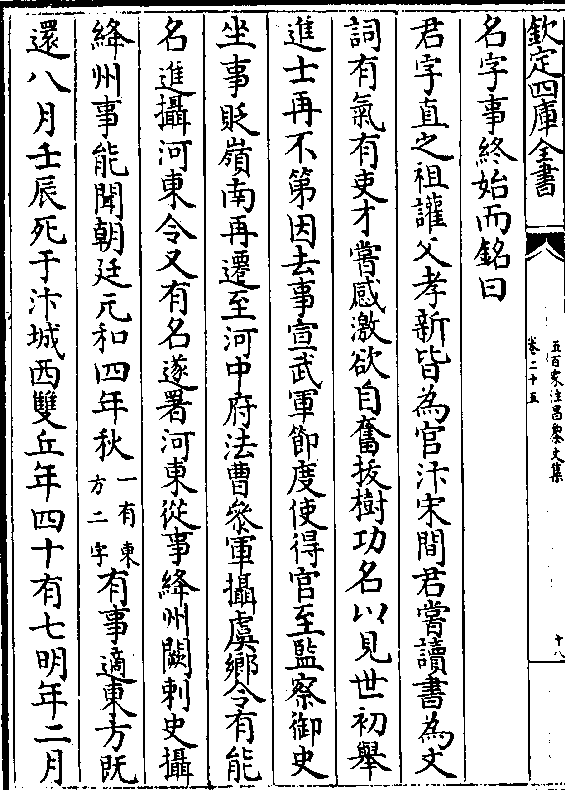 欽定四庫全書
五百家注昌黎文集
卷二十五
十八
名字事終始而銘曰
君字直之祖讙父孝新皆為官汴宋間君嘗讀書為文
詞有氣有吏才嘗感激欲自奮拔樹功名以見世初舉
進士再不第因去事宣武軍節度使得官至監察御史
坐事貶嶺南再遷至河中府法曹叅軍攝虞鄉令有能
名進攝河東令又有名遂署河東從事絳州闕刺史攝
絳州事能聞朝廷元和四年秋一有東方二字有事適東方既
還八月壬辰死于汴城西雙丘年四十有七明年二月